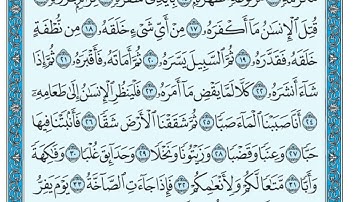 قُتِلَ ٱلْإِنسَٰنُ مَآ أَكْفَرَهُۥ ١٧ مِنْ أَىِّ شَىْءٍ خَلَقَهُۥ ١٨ مِن نُّطْفَةٍ
خَلَقَهُۥ فَقَدَّرَهُۥ ١٩ ثُمَّ ٱلسَّبِيلَ يَسَّرَهُۥ ٢٠ ثُمَّ أَمَاتَهُۥ فَأَقْبَرَهُۥ ٢١ ثُمَّ إِذَا
شَآءَ أَنشَرَهُۥ ٢٢ كَلَّا لَمَّا يَقْضِ مَآ أَمَرَهُۥ ٢٣ فَلْيَنظُرِ ٱلْإِنسَٰنُ إِلَىٰ طَعَامِهِۦٓ
٢٤ أَنَّا صَبَبْنَا ٱلْمَآءَ صَبًّا ٢٥ ثُمَّ شَقَقْنَا ٱلْأَرْضَ شَقًّا ٢٦ فَأَنۢبَتْنَا فِيهَا
حَبًّا ٢٧ وَعِنَبًا وَقَضْبًا ٢٨ وَزَيْتُونًا وَنَخْلًا ٢٩ وَحَدَآئِقَ غُلْبًا ٣٠ وَفَٰكِهَةً
وَأَبًّا ٣١ مَّتَٰعًا لَّكُمْ وَلِأَنْعَٰمِكُمْ ٣٢ فَإِذَا جَآءَتِ ٱلصَّآخَّةُ ٣٣ يَوْمَ يَفِرُّ